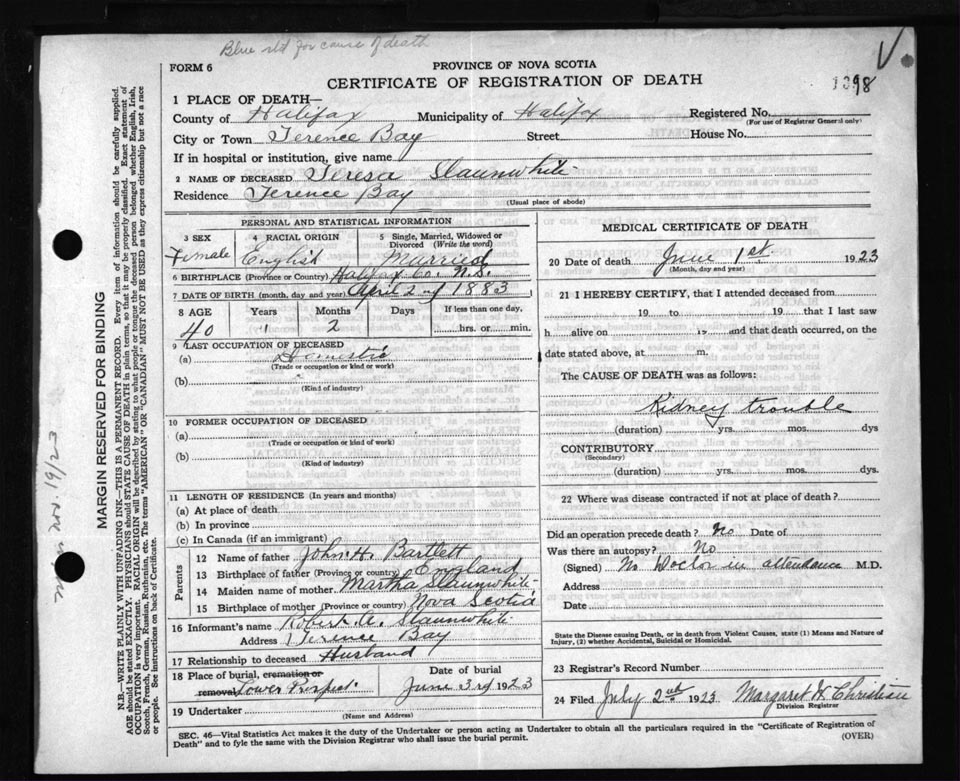 Blue std for cause of death
FORM 6
PROVINCE OF NOVA SCOTIA
CERTIFICATE OF REGISTRATION OF DEATH
1398
1 PLACE OF DEATH—
County of Halifax Municipality of Halifax Registered No.
(For use of Registrar General only)
City or Town Terence Bay Street House No.
If in hospital or institution, give name
2 NAME OF DECEASED Teresa Slaunwhite
Residence Terence Bay
(Usual place of abode)
PERSONAL AND STATISTICAL INFORMATION
3 SEX 4 RACIAL ORIGIN 5 Single, Married, Widowed or Divorced (Write the word)
Female English Married
6 BIRTHPLACE (Province or Country) Halifax Co. N.S.
7 DATE OF BIRTH (month, day and year) April 2nd 1883
8 AGE Years Months Days If less than one day,
40 2 hrs. or min.
9 LAST OCCUPATION OF DECEASED
(a) Domestic
(Trade or occupation or kind or work)
(b)
(Kind of industry)
10 FORMER OCCUPATION OF DECEASED
(a)
(Trade or occupation or kind of work)
(b)
(Kind of industry)
11 LENGTH OF RESIDENCE (In years and months)
(a) At place of death
(b) In province
(c) In Canada (if an immigrant)
Parents
12 Name of father John H. Bartlett
13 Birthplace of father (Province or country) England
14 Maiden name of mother Martha Slaunwhite
15 Birthplace of mother (Province or country) Nova Scotia
16 Informant's name Robert A. Slaunwhite
Address Terence Bay
17 Relationship to deceased Husband
18 Place of burial, cremation or removal Lower Prospect Date of burial June 3rd 1923
19 Undertaker
(Name and Address)
MEDICAL CERTIFICATE OF DEATH
20 Date of death June 1st 1923
(Month, day and year)
21 I HEREBY CERTIFY, that I attended deceased from
19 to 19 that I last saw
h alive on 19 and that death occurred, on
date stated above, at m.
The CAUSE OF DEATH was as follows:
Kidney trouble
(duration) yrs. mos. dys
CONTRIBUTORY
(Secondary)
(duration) yrs. mos. dys.
22 Where was disease contracted if not at place of death?
Did an operation precede death? No Date of
Was there an autopsy? No
(Signed) No Doctor in attendance M.D.
Address
Date
State the Disease causing Death, or in death from Violent Causes, state (1) Means and Nature of
Injury, (2) whether Accidental, Suicidal or Homicidal.
23 Registrar's Record Number
24 Filed July 2nd 1923 Margaret H. Christian
Division Registrar
SEC. 46—Vital Statistics Act makes it the duty of the Undertaker or person acting as Undertaker to obtain all the particulars required in the "Certificate of Registration of
Death" and to fyle the same with the Division Registrar who shall issue the burial permit.
(OVER)
MARGIN RESERVED FOR BINDING
N.B.—WRITE PLAINLY WITH UNFADING INK—THIS IS A PERMANENT RECORD. Every item of information should be carefully supplied.
AGE should be stated EXACTLY. PHYSICIANS should STATE CAUSE OF DEATH in plain terms, so that it may be properly classified. Exact statement of
OCCUPATION is very important. RACIAL ORIGIN will be described by stating to what people or tongue the deceased person belonged whether English, Irish,
Scotch, French, German, Russian, Ruthenian, etc. The terms "AMERICAN" OR "CANADIAN" MUST NOT BE USED as they express citizenship but not a race
or people. See instructions on back of Certificate.
Nov. 19/23